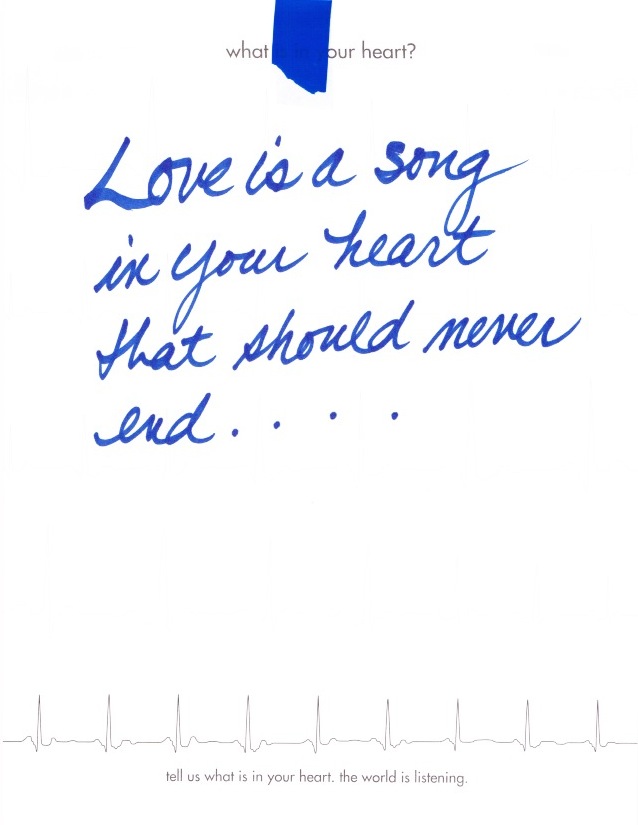 what is in your heart?
Love is a song
in your heart
that should never
end....
tell us what is in your heart. the world is listening.